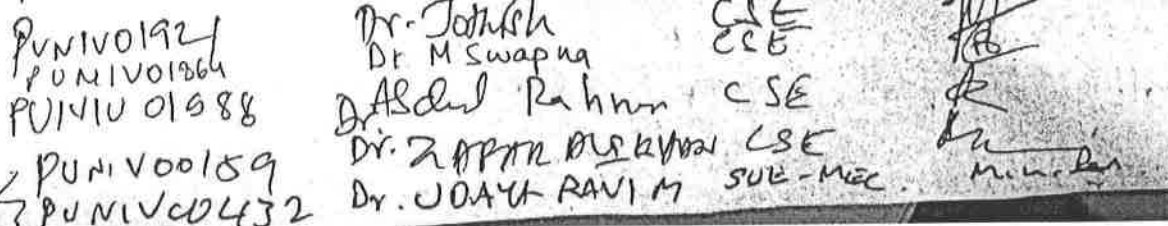 PUNIV01921 Dr. Jothish CSE
PUNIV01864 Dr M Swapna CSE
PUNIV 01988 Dr Abdul Rahman CSE
PUNIV00159 Dr. ZAFAR CSE
PUNIV00432 Dr. UDAYA RAVI M SOE-MEC